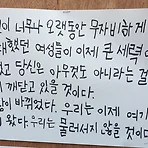 이 너무나 오랫동안 무자비하게
대했던 여성들이 이제 큰 세력이
고 당신은 아무것도 아니라는 걸
깨닫고 있을 것이다.
이 바뀌었다. 우리는 이제 여기
왔다. 우리는 물러서지 않을 것이다.